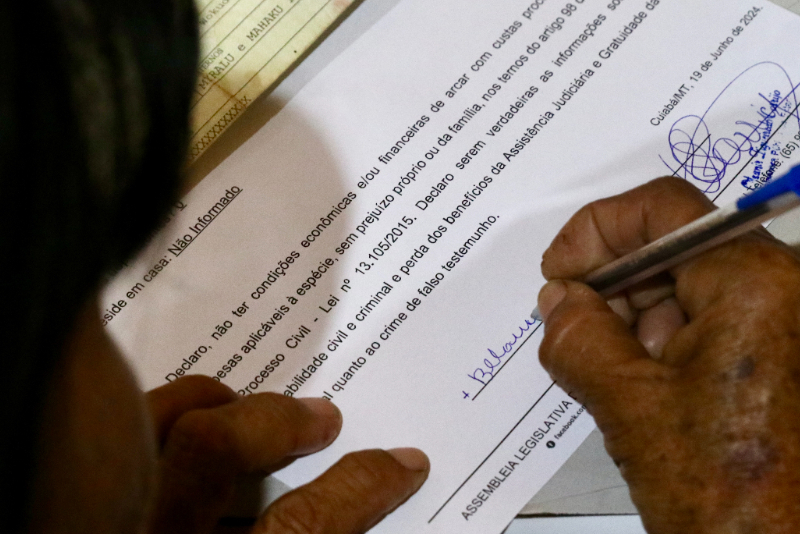 MIRALU e MAHAKU
XXXXXXXXXXXX
eside em casa: Não Informado
Declaro, não ter condições econômicas e/ou financeiras de arcar com custas proc
pesas aplicáveis à espécie, sem prejuízo próprio ou da família, nos termos do artigo 98
Processo Civil - Lei nº 13.105/2015. Declaro serem verdadeiras as informações so
abilidade civil e criminal e perda dos benefícios da Assistência Judiciária e Gratuidade da
al quanto ao crime de falso testemunho.
Cuiabá/MT, 19 de Junho de 2024.
(65)
+
ASSEMBLEIA LEGISLATIVA
facebook.co